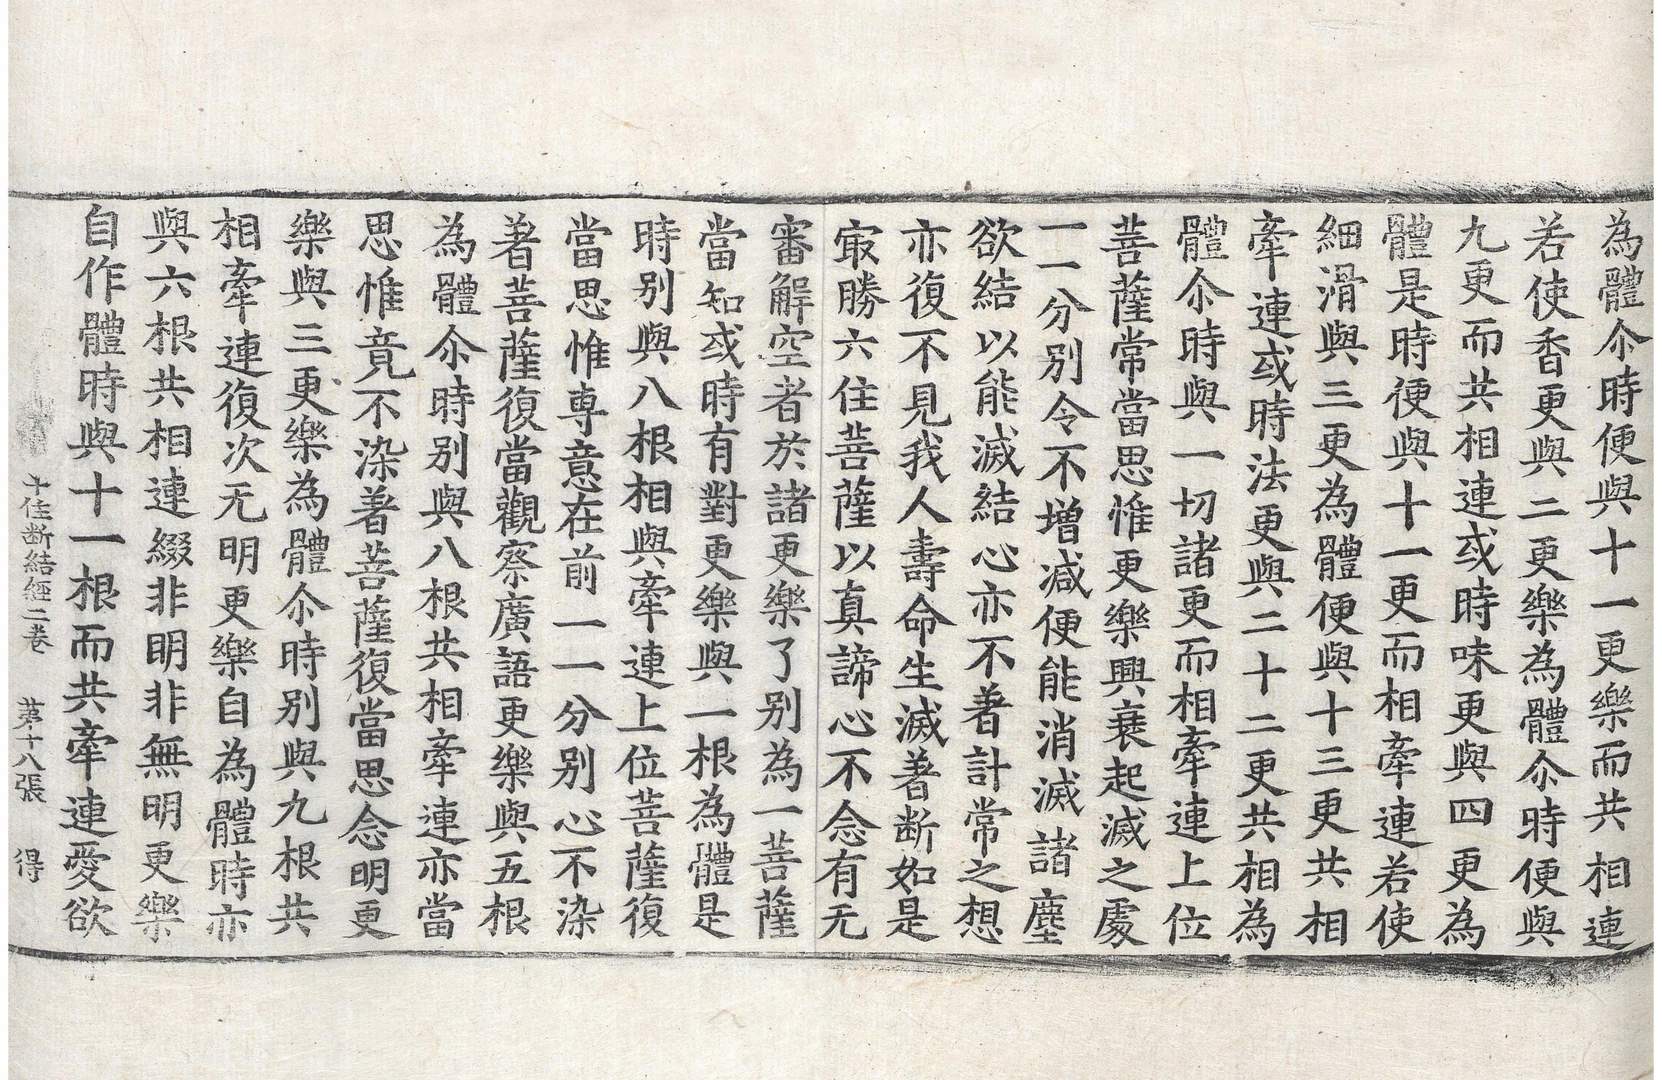 為體尒時便與十一更樂而共相連
若使香更與二更樂為體尒時便與
九更而共相連或時味更與四更為
體是時便與十一更而相牽連若使
細滑與三更為體便與十三更共相
牽連或時法更與二十二更共相為
體尒時與一切諸更而相牽連上位
菩薩常當思惟更樂興衰起滅之處
一一分別令不增減便能消滅諸塵
欲結以能滅結心亦不著計常之想
亦復不見我人壽命生滅著断如是
冣勝六住菩薩以真諦心不念有无
審解空者於諸更樂了別為一菩薩
當知或時有對更樂與一根為體是
時別與八根相與牽連上位菩薩復
當思惟專意在前一一分別心不染
著菩薩復當觀察廣語更樂與五根
為體尒時別與八根共相牽連亦當
思惟竟不染著菩薩復當思念明更
樂與三更樂為體尒時別與九根共
相牽連復次无明更樂自為體時亦
與六根共相連綴非明非無明更樂
自作體時與十一根而共牽連愛欲
十住断結經二卷 苐十八張 得